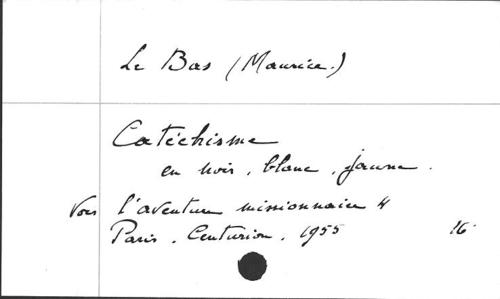 Le Bas (Maurice.)
Catéchisme
en noir, blanc, jaune.
Vers l'aventure missionnaire 4
Paris, Centurion, 1955 16